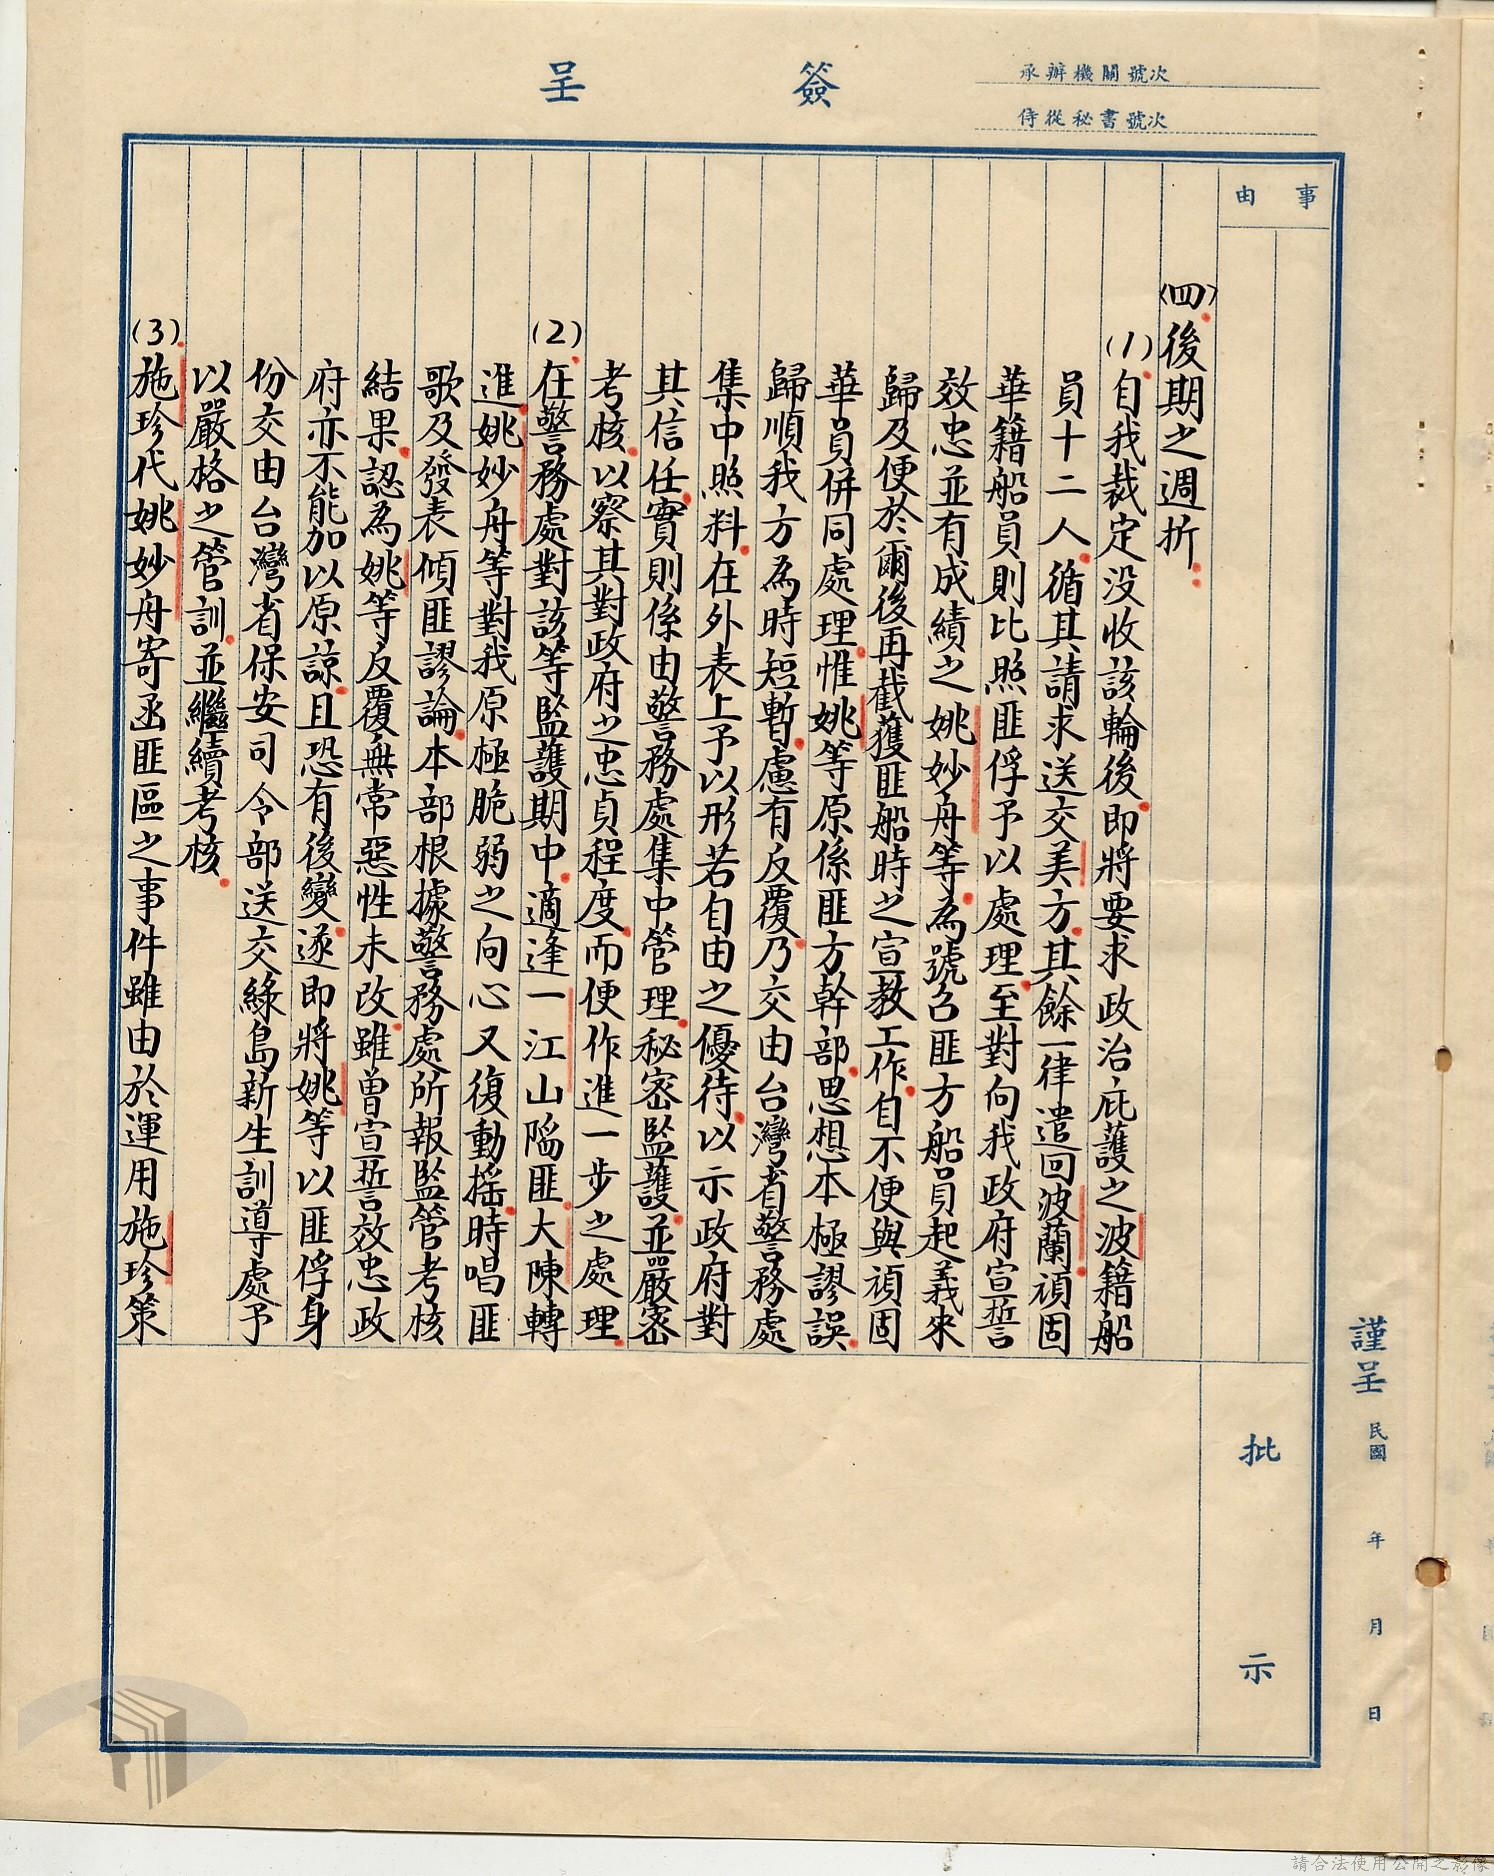 簽呈
承辦機關號次
侍從秘書號次
事由
㈣後期之週折：
(1)自我裁定没收該輪後，即將要求政治庇護之波籍船
員十二人，循其請求送交美方，其餘一律遣回波蘭，頑固
華籍船員則比照匪俘予以處理，至對向我政府宣誓
效忠並有成績之姚妙舟等，為號召匪方船員起義來
歸及便於爾後再截獲匪船時之宣教工作，自不便與頑固
華員併同處理，惟姚等原係匪方幹部，思想本極謬誤，
歸順我方為時短暫，慮有反覆，乃交由台灣省警務處
集中照料，在外表上予以形若自由之優待，以示政府對
其信任，實則係由警務處集中管理，秘密監護，並嚴密
考核，以察其對政府之忠貞程度，而便作進一步之處理。
(2)在警務處對該等監護期中，適逢一江山陷匪，大陳轉
進，姚妙舟等對我原極脆弱之向心又復動搖，時唱匪
歌及發表傾匪謬論，本部根據警務處所報監管考核
結果，認為姚等反覆無常惡性未改，雖曾宣誓效忠政
府亦不能加以原諒，且恐有後變，遂即將姚等以匪俘身
份交由台灣省保安司令部送交綠島新生訓導處予
以嚴格之管訓，並繼續考核。
(3)施珍代姚妙舟寄函匪區之事件雖由於運用施珍策
批示
謹呈
民國 年 月 日
請合法使用公開之影像